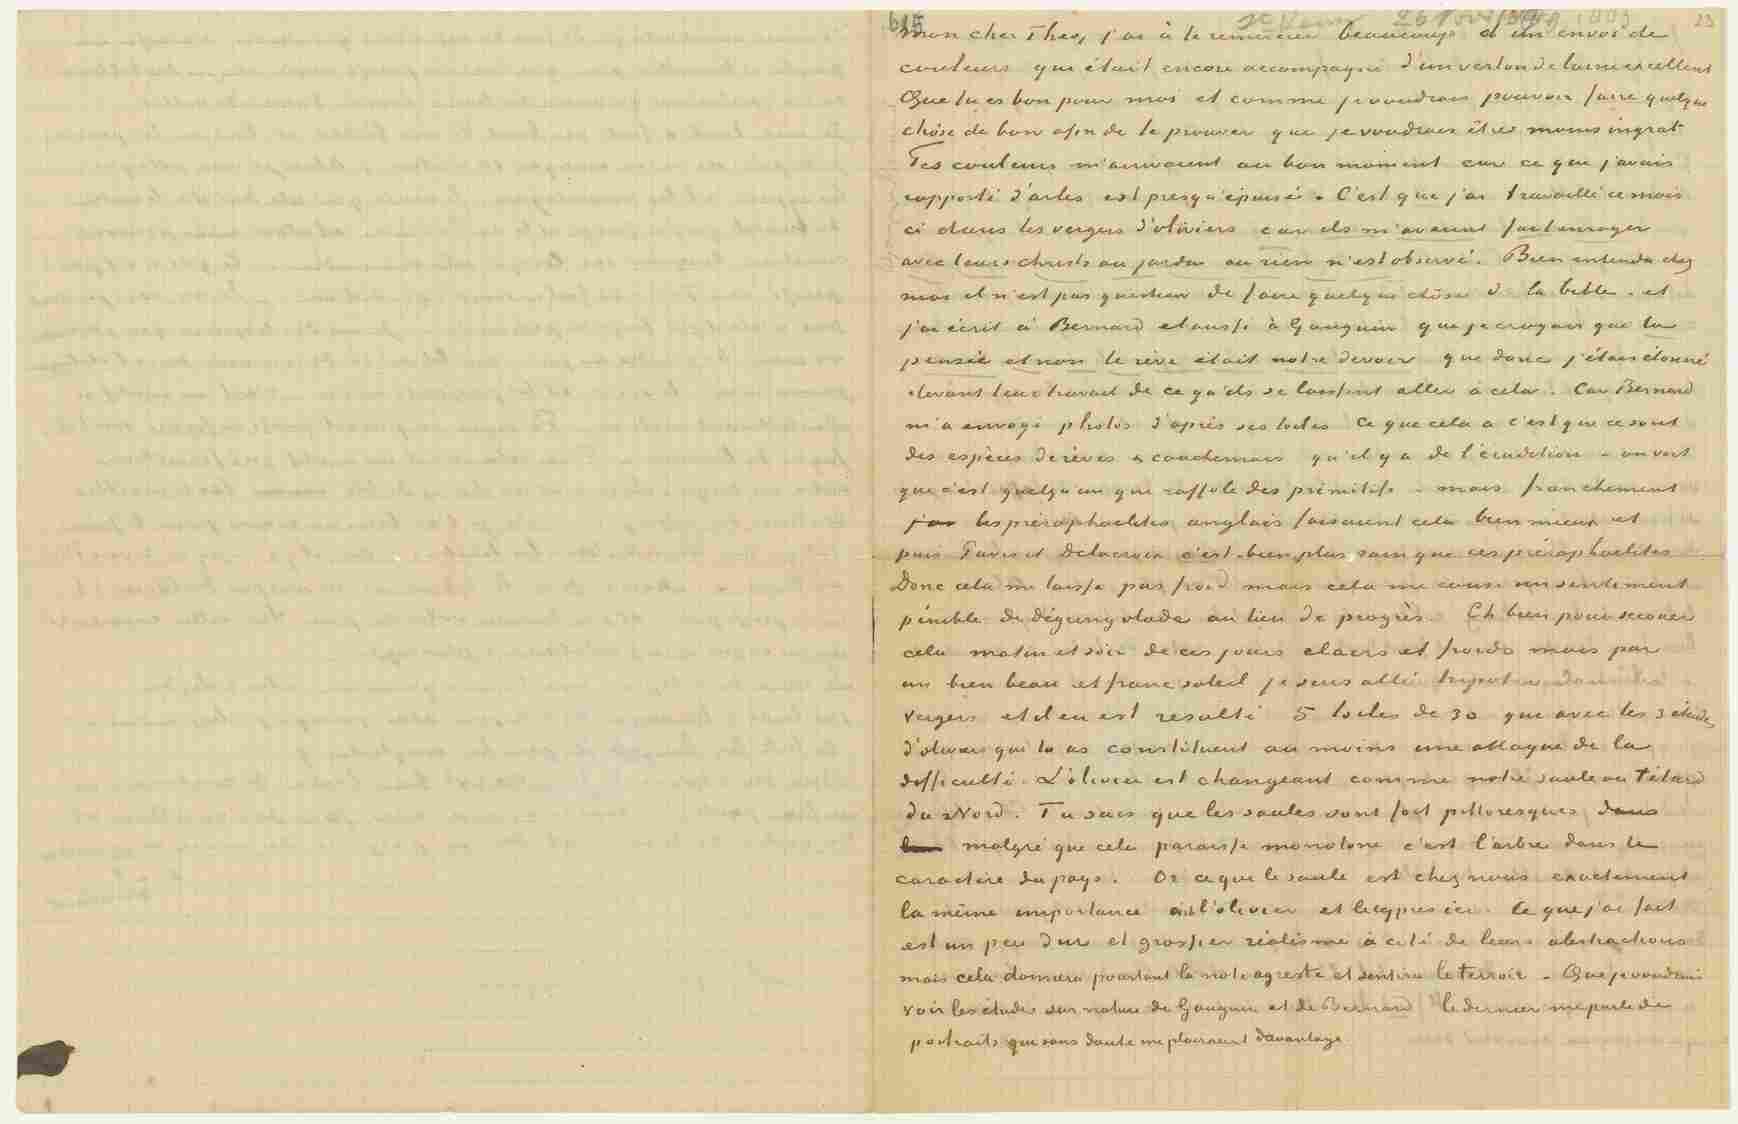 615
23
Mon cher Theo, j'ai à te remercier beaucoup d'un envoi de
couleurs qui était encore accompagné d'un veston de laine excellent
Que tu es bon pour moi et comme je voudrais pouvoir faire quelque
chôse de bon afin de te prouver que je voudrais être moins ingrat.
Tes couleurs m'arrivaient au bon moment car ce que j'avais
rapporté d'arles est presqu'épuisé. C'est que j'ai travaillé ce mois
ci dans les vergers d'oliviers car ils m'avaient fait enrager
avec leurs christs au jardin ou rien n'est observé. Bien entendu chez
moi il n'est pas question de faire quelque chôse de la bible. et
j'ai écrit à Bernard et aussi à Gauguin que je croyais que la
pensée et non le rève était notre devoir que donc j'étais étonné
devant leur travail de ce qu'ils se laissent aller à cela. Car Bernard
m'a envoyé photos d'après ses toiles Ce que cela a c'est que ce sont
des espèces de rèves & cauchemars qu'il y a de l'érudition – on voit
que c'est quelqu'un qui raffole des primitifs – mais franchement
j'ai les préraphaelites anglais faisaient cela bien mieux et
puis Puvis et Delacroix c'est bien plus sain que ces préraphaelites
Donc cela me laisse pas froid mais cela me cause un sentiment
pénible de dégringolade au lieu de progrès. Eh bien pour secouer
cela matin et soir de ces jours clairs et froids mais par
un bien beau et franc soleil je suis allé dans les
vergers et il en est resulté 5 toiles de 30 que avec les 3 études
d'oliviers que tu as constituent au moins une attaque de la
difficulté. L'olivier est changeant comme notre saule ou têtard
du Nord. Tu sais que les saules sont fort pittoresques, dans
malgré que cela paraisse monotone c'est l'arbre dans le
caractère du pays. Or ce que le saule est chez nous exactement
la même importance a l'olivier et le cyprès ici. Ce que j'ai fait
est un peu dur et grossier réalisme à cote de leurs abstractions
mais cela donnera pourtant la note agreste et sentira le terroir – Que je voudrais
voir les études sur nature de Gauguin et de Bernard le dernier me parle de
portraits qui sans doute me plairaient davantage